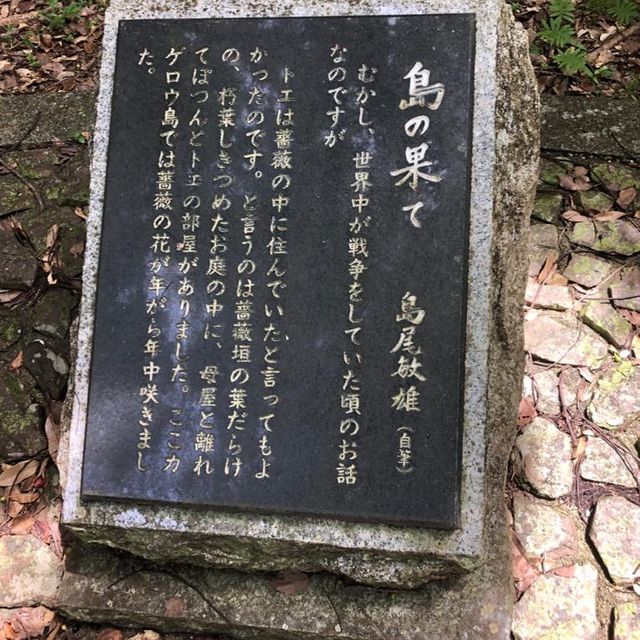 島の果て　島尾敏雄（自筆）
むかし、世界中が戦争をしていた頃のお話
なのですが
トエは薔薇の中に住んでいた、と言ってもよ
かったのです。と言うのは薔薇垣の葉だらけ
の、朽葉しきつめたお庭の中に、母屋と離れ
てぽつんとトエの部屋がありました。ここカ
ゲロウ島では薔薇の花が年がら年中咲きまし
た。